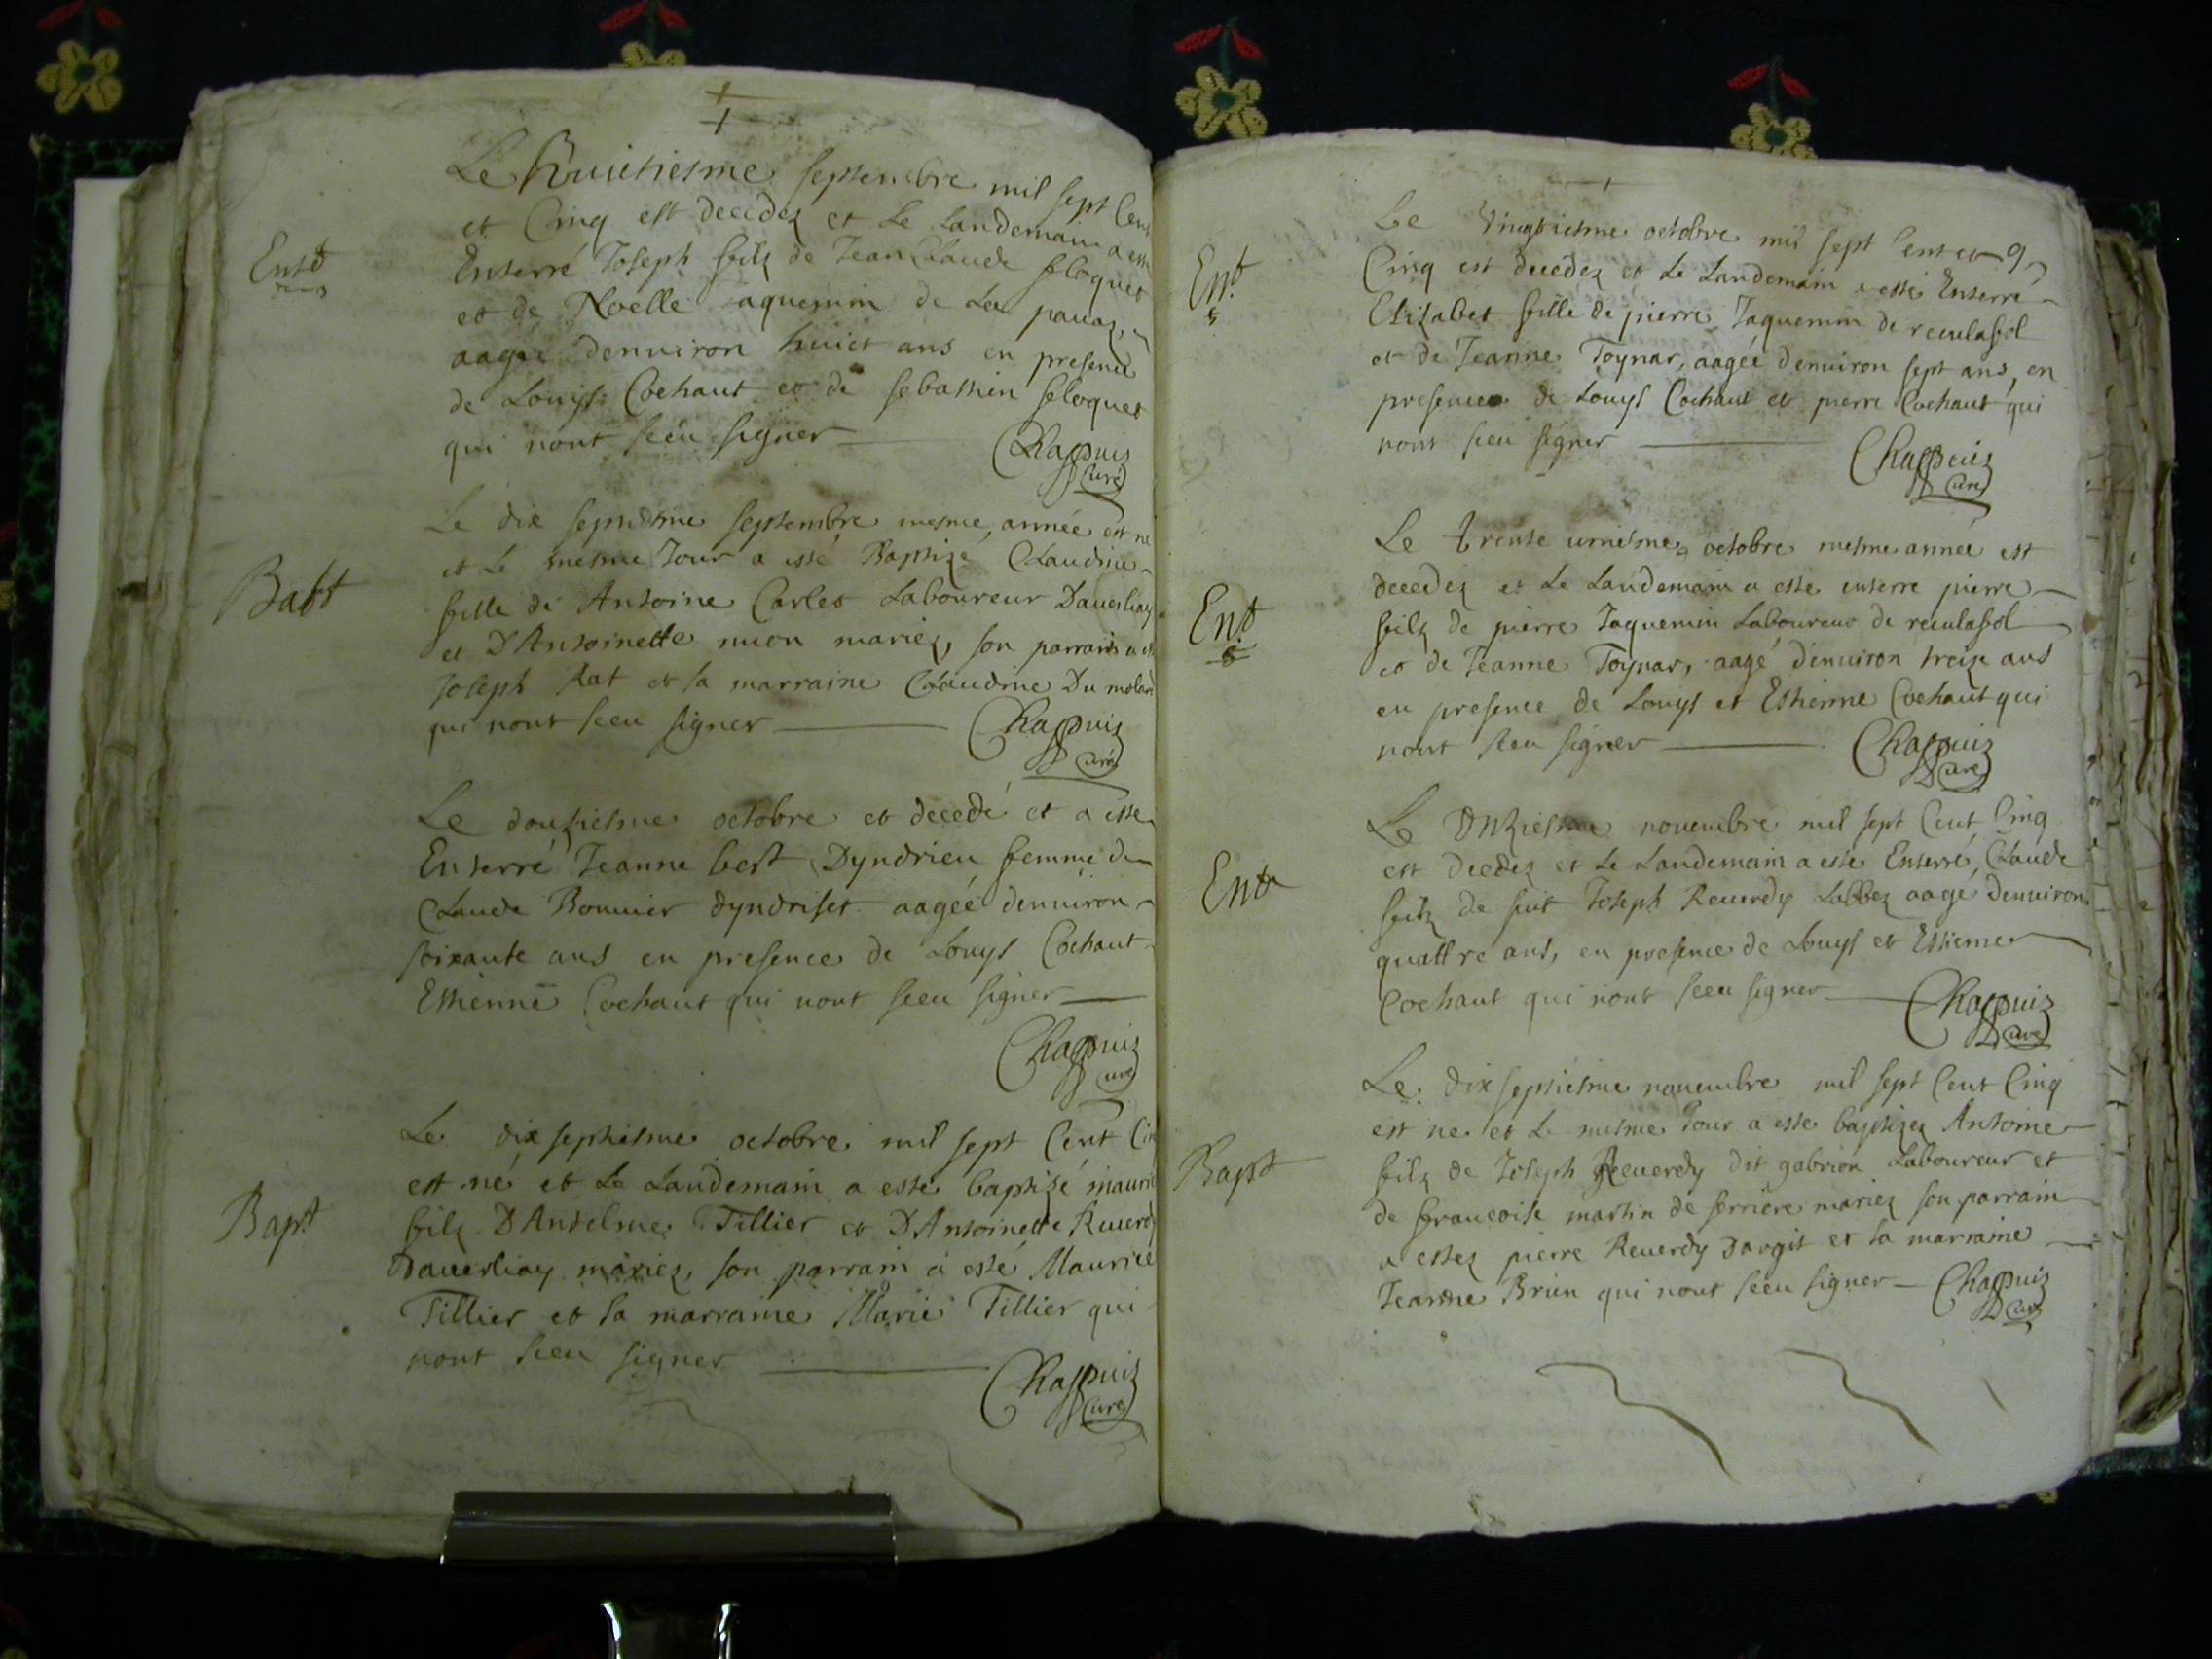 Le huictiesme septembre mil sept Cent
et Cinq est decedez et Le Landemain a esté
Entt
Enterré Joseph filz de Jean Claude feloquet
et de Noelle Jaquemin de La
aagée denuiron huict ans en presence
de Louys Cochaut et de sebastien feloquet
qui nont sceu signer
Chappuis
Curé
Le dix septiesme septembre mesme année est né
et Le mesme Jour a esté Baptizé Claudine
Bapt
fille de Antoine Carlet Laboureur Daueiliay
et D'Antoinette muon mariez, son parrain a esté
Joseph Rat et sa marraine Claudine Du molard
qui nont sceu signer
Chappuis
Curé
Le douziesme octobre et decedé et a esté
Enterré Jeanne best Dyndrieu femme de
Claude Bonnier dyndriset aagée denuiron
soixante ans en presence de Louys Cochaut
Estienne Cochaut qui nont sceu signer
Chappuis
Curé
Le dix septiesme octobre mil sept Cent Cinq
est né et Le Landemain a esté baptizé maurice
Bapt
filz D'Antelme Tillier et D'Antoinette Reuerdy
Daueiliay mariez, son parrain a esté Maurice
Tillier et sa marraine Marie Tillier qui
nont sceu signer
Chappuis
Curé
Le Vingtiesme octobre mil sept Cent et
Ent
Cinq est decedez et Le Landemain a esté Enterré
Elizabet fille de pierre Jaquemin de reculafol
et de Jeanne Toynar, aagée denuiron sept ans, en
presence de Louys Cochaut et pierre Cochaut qui
nont sceu signer
Chappuis
Curé
Le trente uniesme octobre mesme année est
decedez et Le Landemain a esté enterré pierre
Ent
filz de pierre Jaquemin Laboureur de reculafol
et de Jeanne Toynar, aagé denuiron treize ans
en presence de Louys et Estienne Cochaut qui
nont sceu signer
Chappuis
Curé
Le Onziesme nouembre mil sept Cent Cinq
est decedez et Le Landemain a esté Enterré Claude
Entr
filz de fut Joseph Reuerdy Labbez aagé denuiron
quattre ans, en presence de Louys et Estienne
Cochaut qui nont sceu signer
Chappuis
Curé
Le dix septiesme nouembre mil sept Cent Cinq
est né et Le mesme Jour a esté baptizez Antoine
Bapt
filz de Joseph Reuerdy dit gabrion Laboureur et
de francoise martin de ferriere mariez son parrain
a estez pierre Reuerdy Dargit et sa marraine
Jeanne Brun qui nont sceu signer
Chappuis
Curé